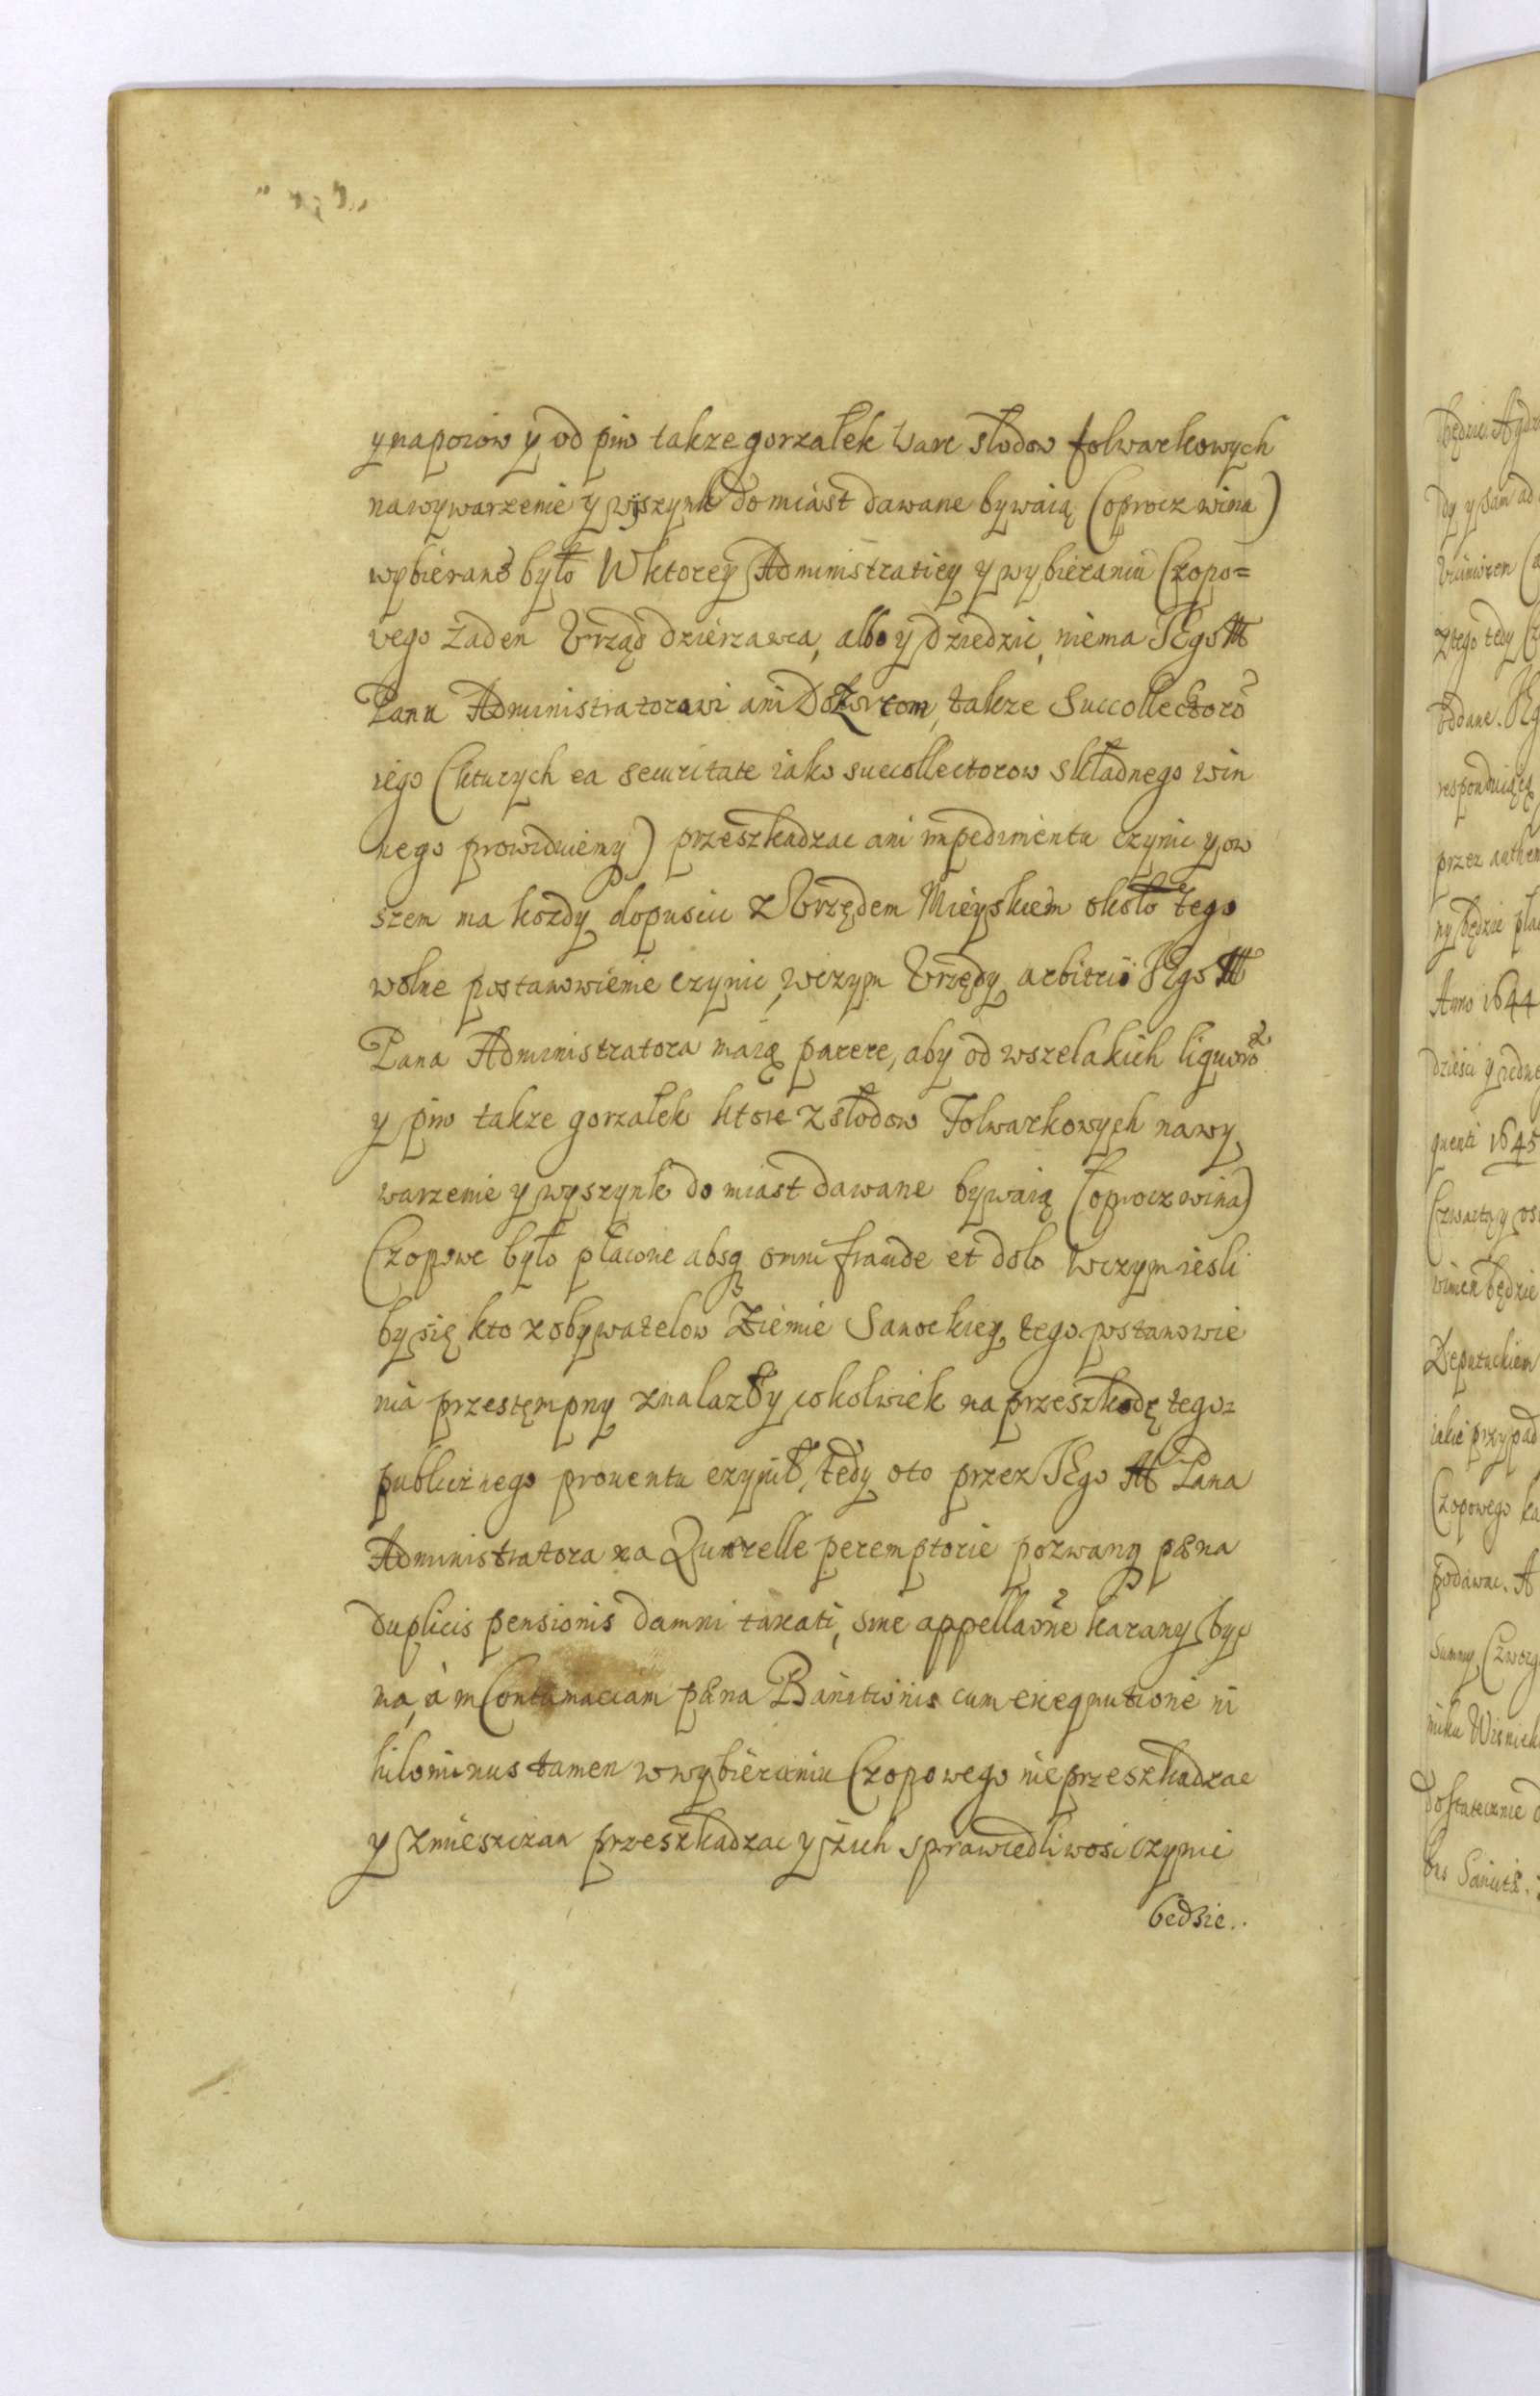 y napoiow y od piw takze gorzałek Ware słodow folwarkowych
na wywarzenie y wyszynk do miast dawane bywaią (oprocz wina)
wybierane było Wktorey Administratiey y wybieraniu Czopo=
wego żaden Vrząd dzierzawca, albo y dziedzic, niema JEgo M
Panu Administratorowi ani Dozorcom, takze Succollectoro
iego (kturych ea securitate iako succollectorow składnego win
nego prowiduiemy) przeszkadzac ani impedimentu czynic y ow
szem ma kozdy dopuscic z Vrzędem Mieyskiem około tego
wolne postanowienie czynic, wczym Vrzędy arbitrio JEgo M
Pana Administratora maią parere, aby od wszelakich liquoro
y piw takze gorzałek ktore z słodow Folwarkowych na wy
warzenie y wyszynk do miast dawane bywaią (oprocz wina)
Czopowe było płacone absq omni fraude et dolo Wczym iesli
by się kto z obywatelow Ziemie Sanockiey tego postanowie
nia przestęmpny znalazł y cokolwiek na przeszkodę tego=
publicznego prouentu czynił, tedy oto przez JEgo M Pana
Administratora na Querelle peremptorie pozwany pæna
duplicis pensionis damni taxati, sine appellaone karany byc
ma, a in Contumaciam pæna Banitionis cum exequutione ni
hilominus tamen w wybieraniu Czopowego nie przeszkadzac
y z mieszczan przeszkadzac y z ich sprawiedliwosc czynic
bedzie..
będzie A
dy y sam ad
Ztego tedy
oddane.
responduiącą
przez authen
ny będzie
Anno 1644
dziesci y iedne
quenti 1645
Czwartą y
winien będzie
Deputackiem
iakie przypad
Czopowego
podawac. A
Summy
nika Wisniek
dostatecznie